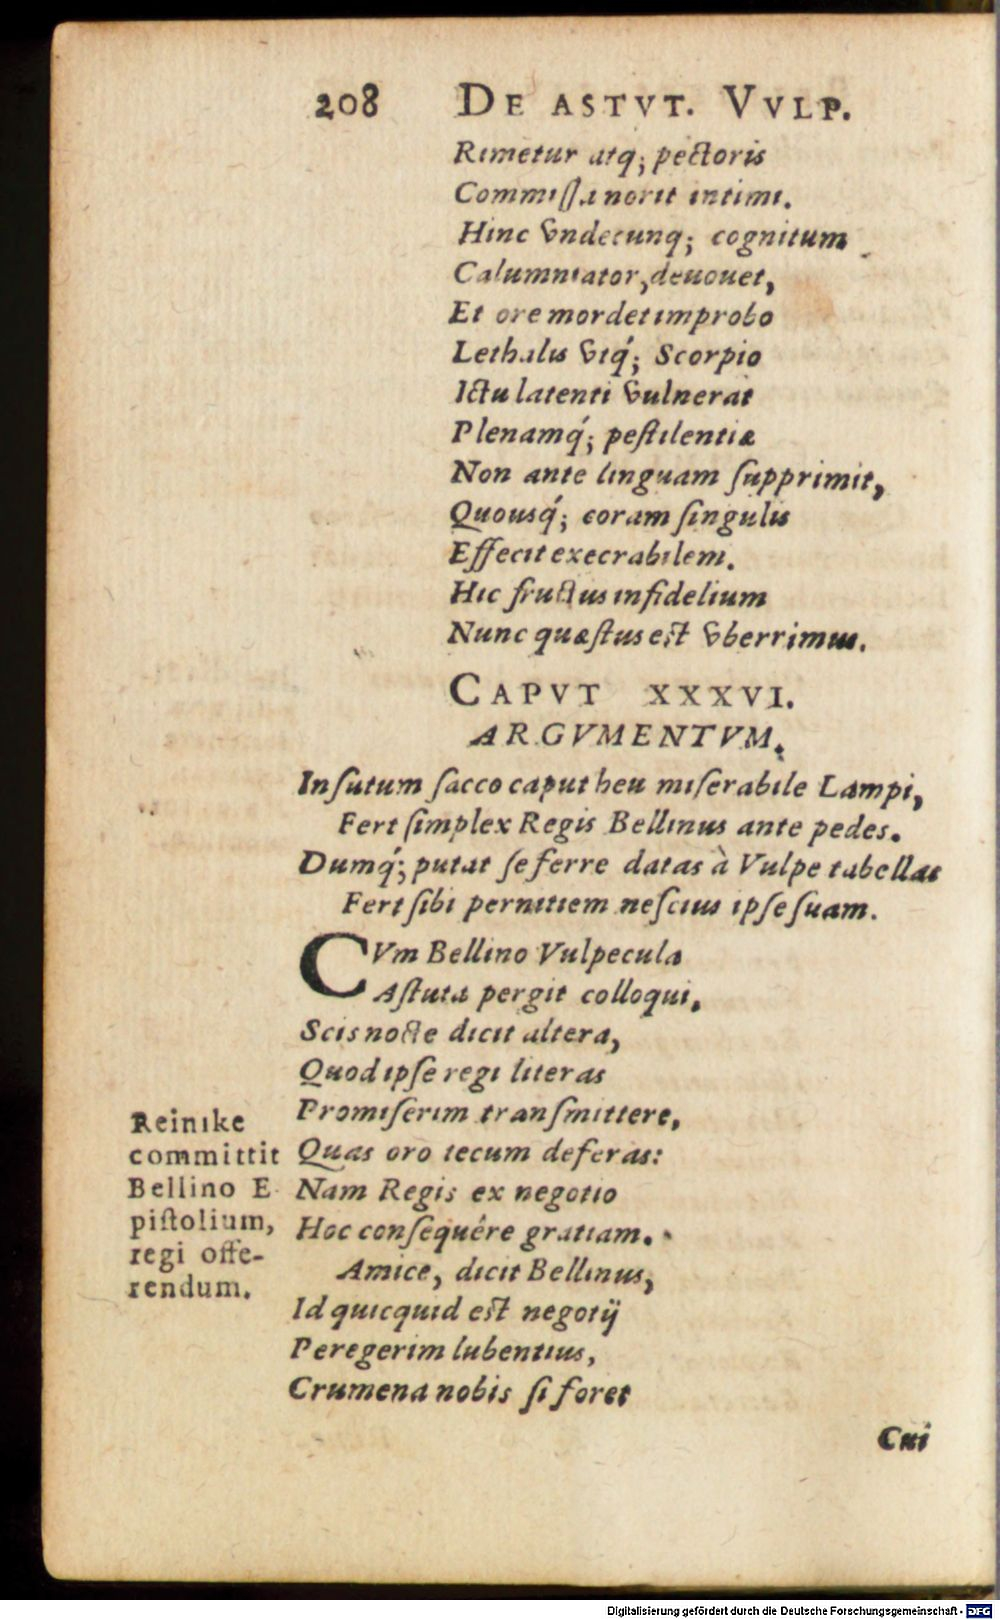 208 DE ASTVT. VVLP.
Rimetur atq; pectoris
Commiſſa norit intimi.
Hinc vndecunq; cognitum
Calumniator, deuouet,
Et ore mordet improbo
Lethalis vtq́; Scorpio
Ictu latenti vulnerat
Plenamq́; peſtilentiæ
Non ante linguam ſupprimit,
Quousq́; coram ſingulis
Effecit execrabilem.
Hic fructus infidelium
Nunc quæſtus eſt vberrimus.
CAPVT XXXVI.
ARGVMENTVM.
Inſutum ſacco caput heu miſerabile Lampi,
Fert ſimplex Regis Bellinus ante pedes.
Dumq́; putat ſe ferre datas à Vulpe tabellas
Fert ſibi pernitiem neſcius ipſe ſuam.
CVm Bellino Vulpecula
Aſtuta pergit colloqui,
Scis nocte dicit altera,
Quod ipſe regi literas
Promiſerim tranſmittere,
Quas oro tecum deferas:
Nam Regis ex negotio
Hoc conſequêre gratiam.
Amice, dicit Bellinus,
Id quicquid eſt negotij
Peregerim lubentius,
Crumena nobis ſi foret
Cui
Reinike
committit
Bellino E
piſtolium,
regi offe-
rendum.
Digitalisierung gefördert durch die Deutsche Forschungsgemeinschaft - DFG